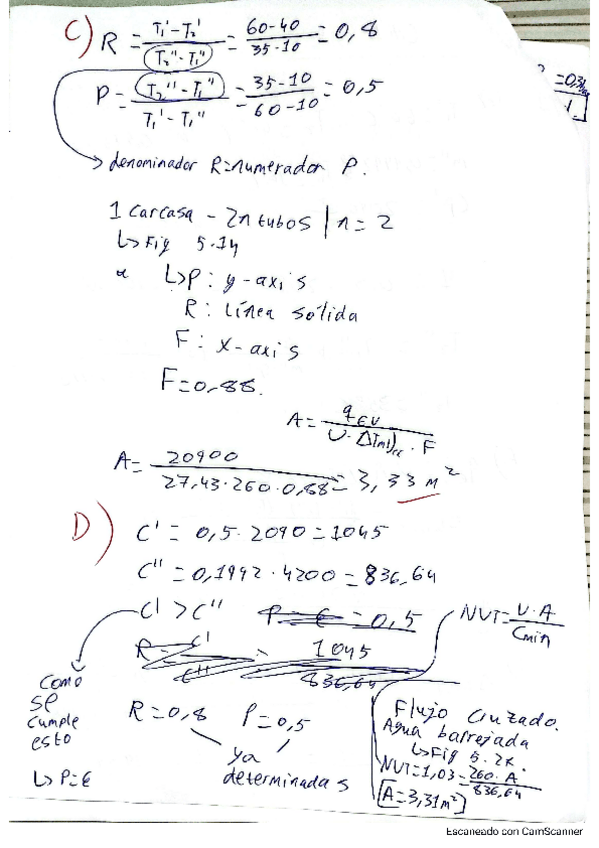 C) R = T₁'-T₂' / T₂''-T₁'' = 60-40 / 35-10 = 0,8
P = T₂''-T₁'' / T₁'-T₁'' = 35-10 / 60-10 = 0,5
denominador R=numerador P.
1 carcasa - 2n tubos | n = 2
↳ Fig 5.14
↳ P: y-axis
R: línea sólida
F: x-axis
F=0,88.
A = q_EV / U·ΔTml)cc · F
A = 20900 / 27,43·260·0,88 = 3,33 m²
D) C' = 0,5·2090 = 1045
C'' = 0,1992·4200 = 836,64
C' > C'' P = € = 0,5
R = C' / C'' = 1045 / 836,64
NUT = U·A / Cmin
Como
se
cumple
esto
↳ P=€
R=0,8 P=0,5
ya
determinadas
Flujo cruzado.
Agua barrejada
↳ Fig 5.2x.
NUT=1,03 = 260·A / 836,64
A=3,31m²
Escaneado con CamScanner